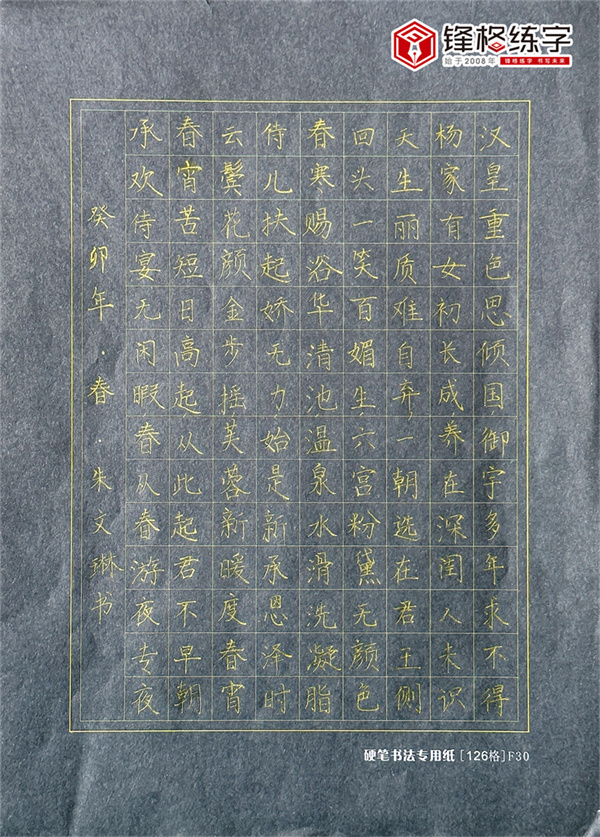 锋格练字
始于2008年 锋格练字 书写未来
汉皇重色思倾国御宇多年求不得
杨家有女初长成养在深闺人未识
天生丽质难自弃一朝选在君王侧
回头一笑百媚生六宫粉黛无颜色
春寒赐浴华清池温泉水滑洗凝脂
侍儿扶起娇无力始是新承恩泽时
云鬓花颜金步摇芙蓉新暖度春宵
春宵苦短日高起从此起君不早朝
承欢侍宴无闲暇春从春游夜专夜
癸卯年·春·朱文琳书
硬笔书法专用纸[126格]F30